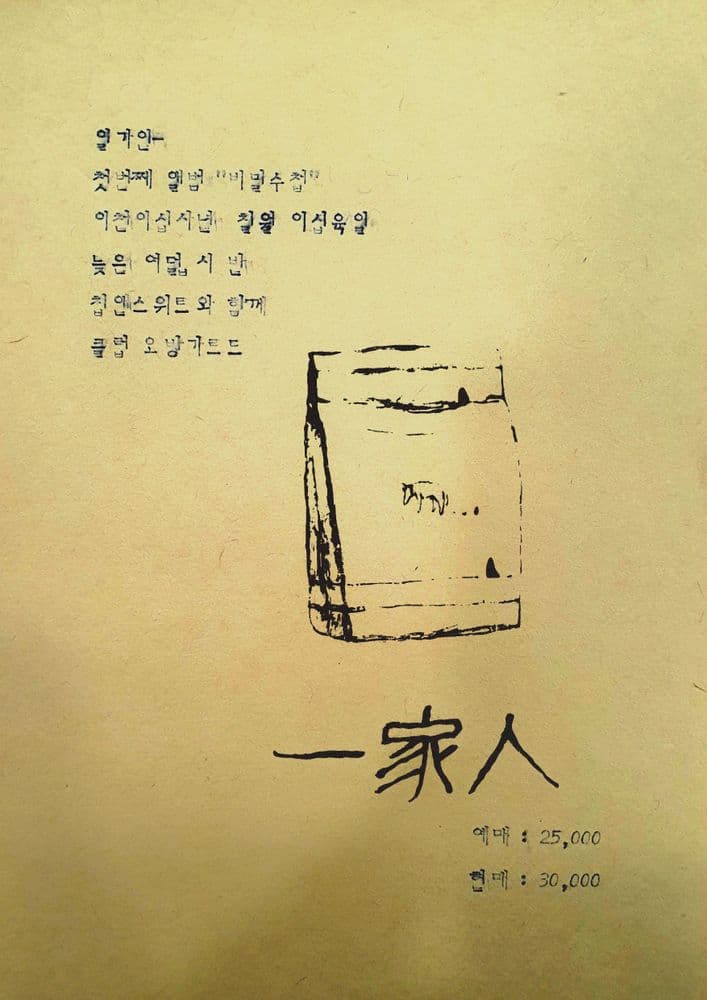 일가인
첫번째 앨범 "비밀수첩"
이천이십사년 칠월 이십육일
늦은 여덟 시 반
칩앤스위트와 함께
클럽 오방가르드
一家人
예매 : 25,000
현매 : 30,000